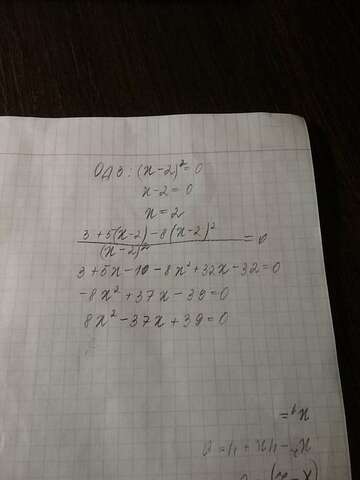 ОДЗ: (x-2)²=0
x-2=0
x=2
3+5(x-2)-8(x-2)²
(x-2)² =0
3+5x-10-8x²+32x-32=0
-8x²+37x-39=0
8x²-37x+39=0
x²-4x+4=0